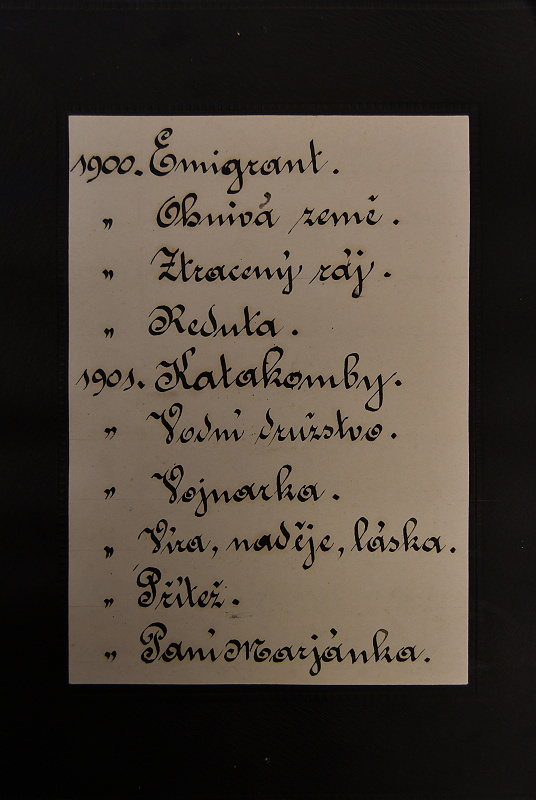 1900. Emigrant.
„ Ohnivá země.
„ Ztracený ráj.
„ Reduta.
1901. Katakomby.
„ Vodní družstvo.
„ Vojnarka.
„ Víra, naděje, láska.
„ Přítež.
„ Paní Marjánka.